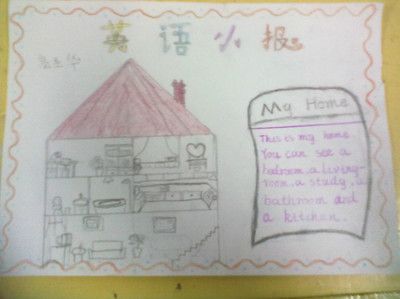 英语小报
My Home
This is my home.
You can see a
bedroom, a living-
room, a study, a
bathroom and
a kitchen.